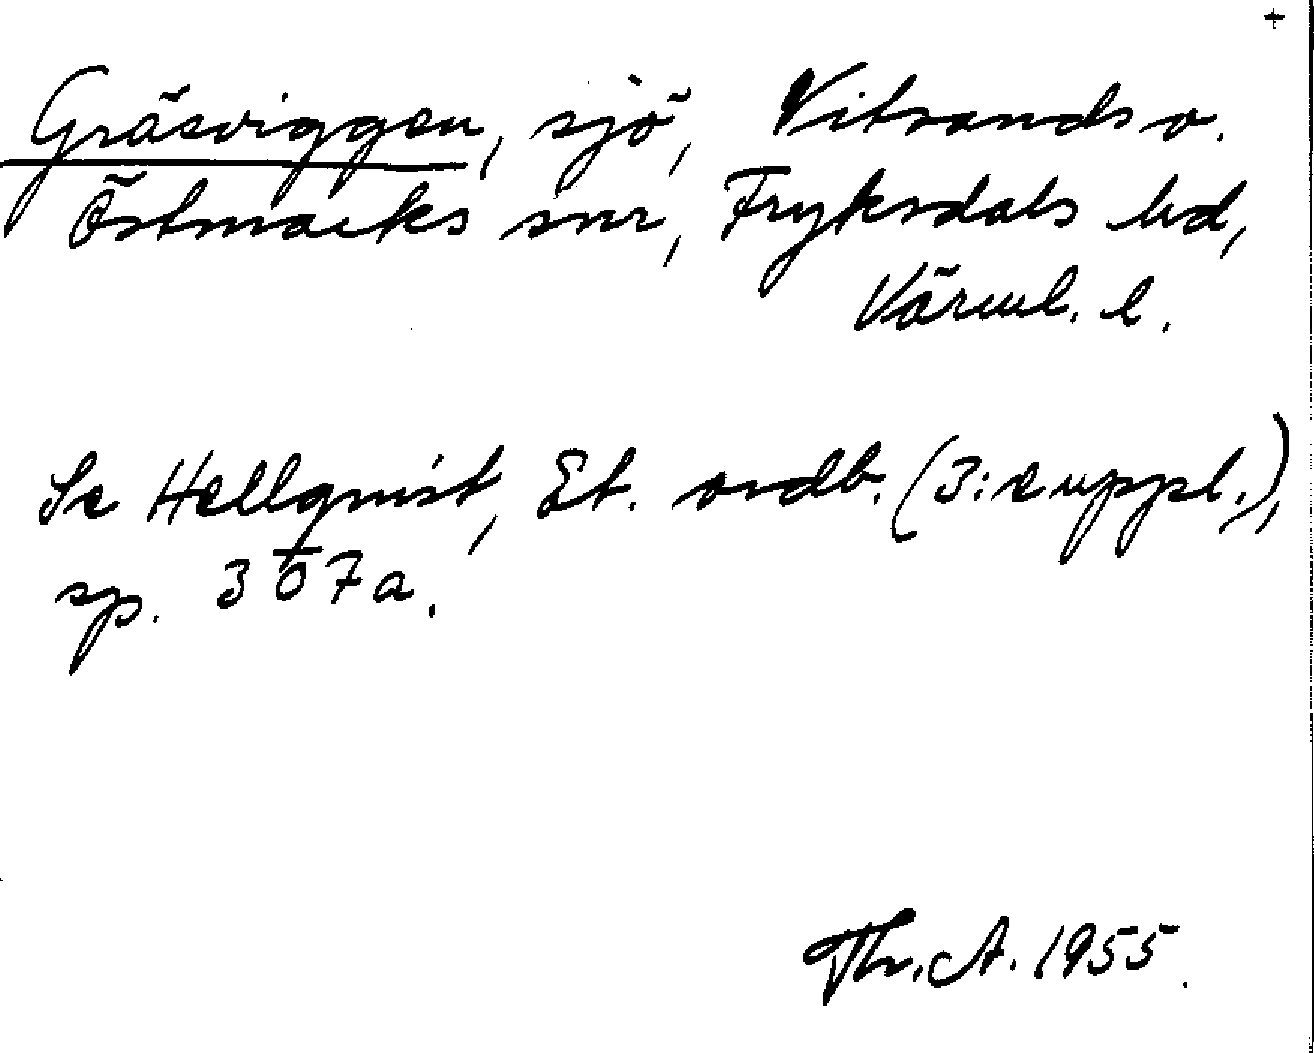 +
Gräsviggen, sjö, Vitsands o.
Östmarks snr, Fryksdals hd,
Värml. l.
Se Hellquist, Et. ordb. (3:e uppl.),
sp. 307a.
Thr. A. 1955.